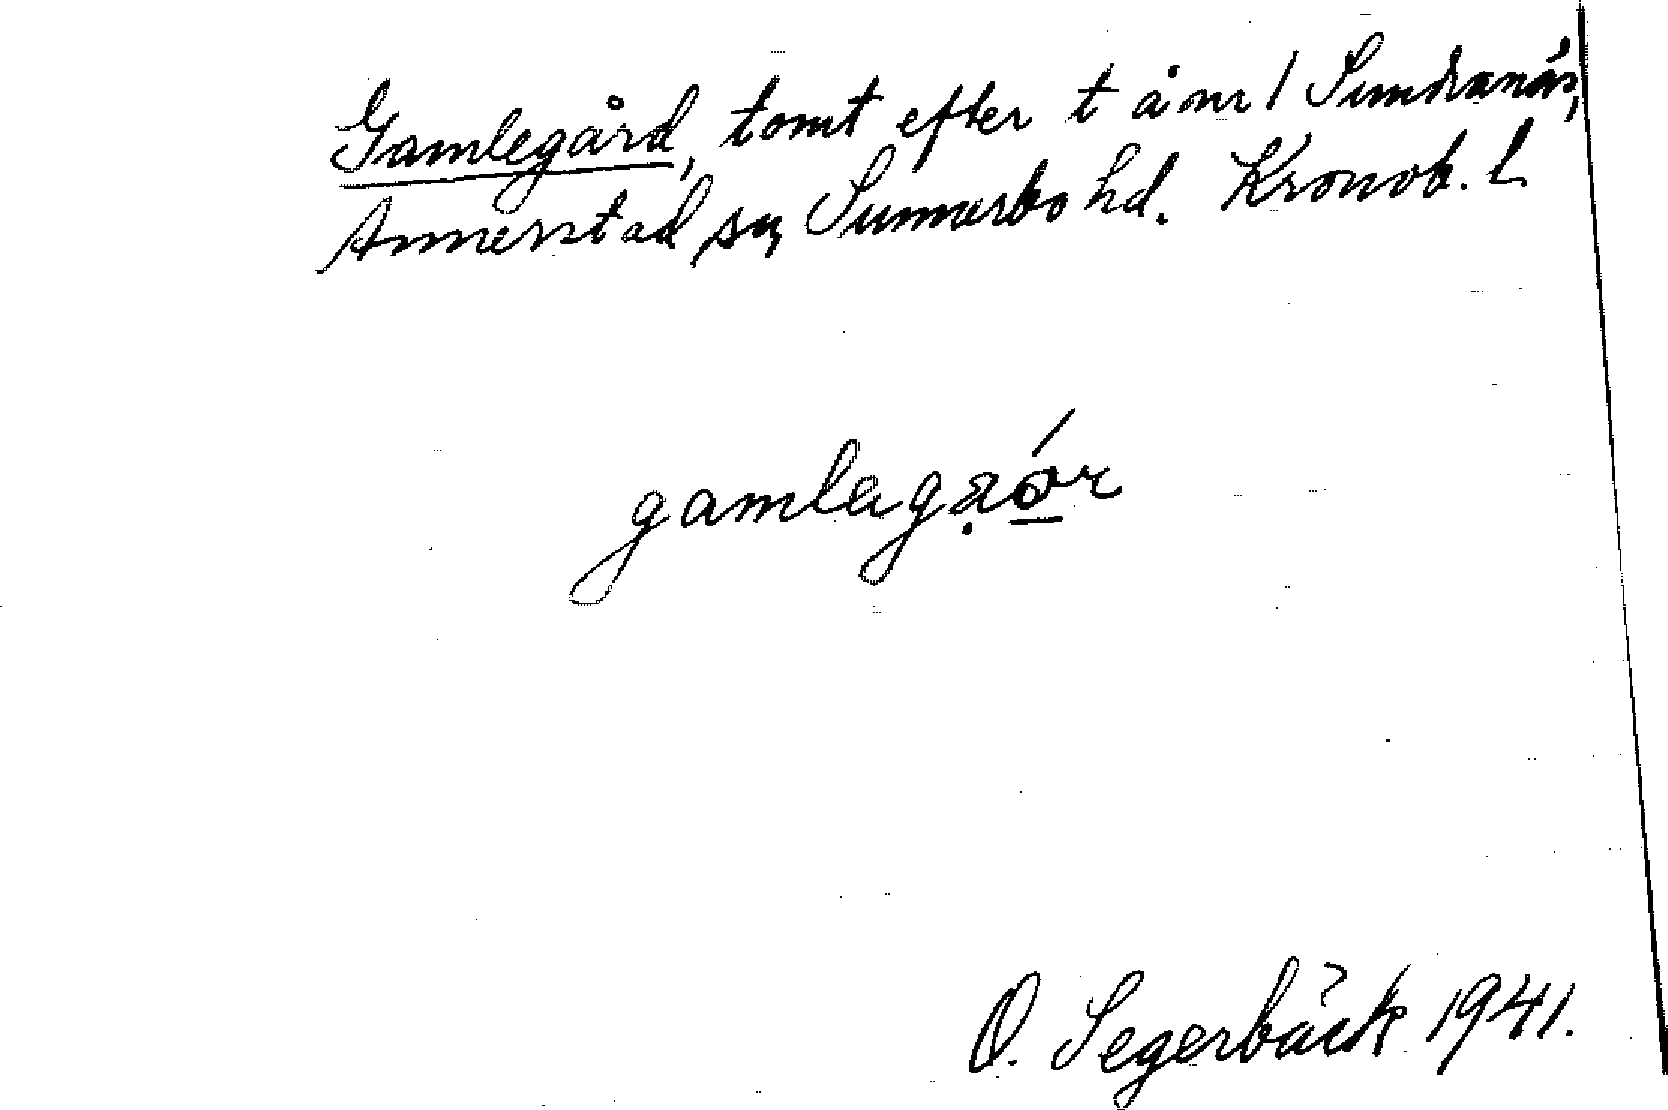 Gamlegård, tomt efter t å nr 1 Sundranäs,
Annerstad sn, Sunnerbo hd. Kronob. L
gamlagaór
O. Segerbäck 1941.